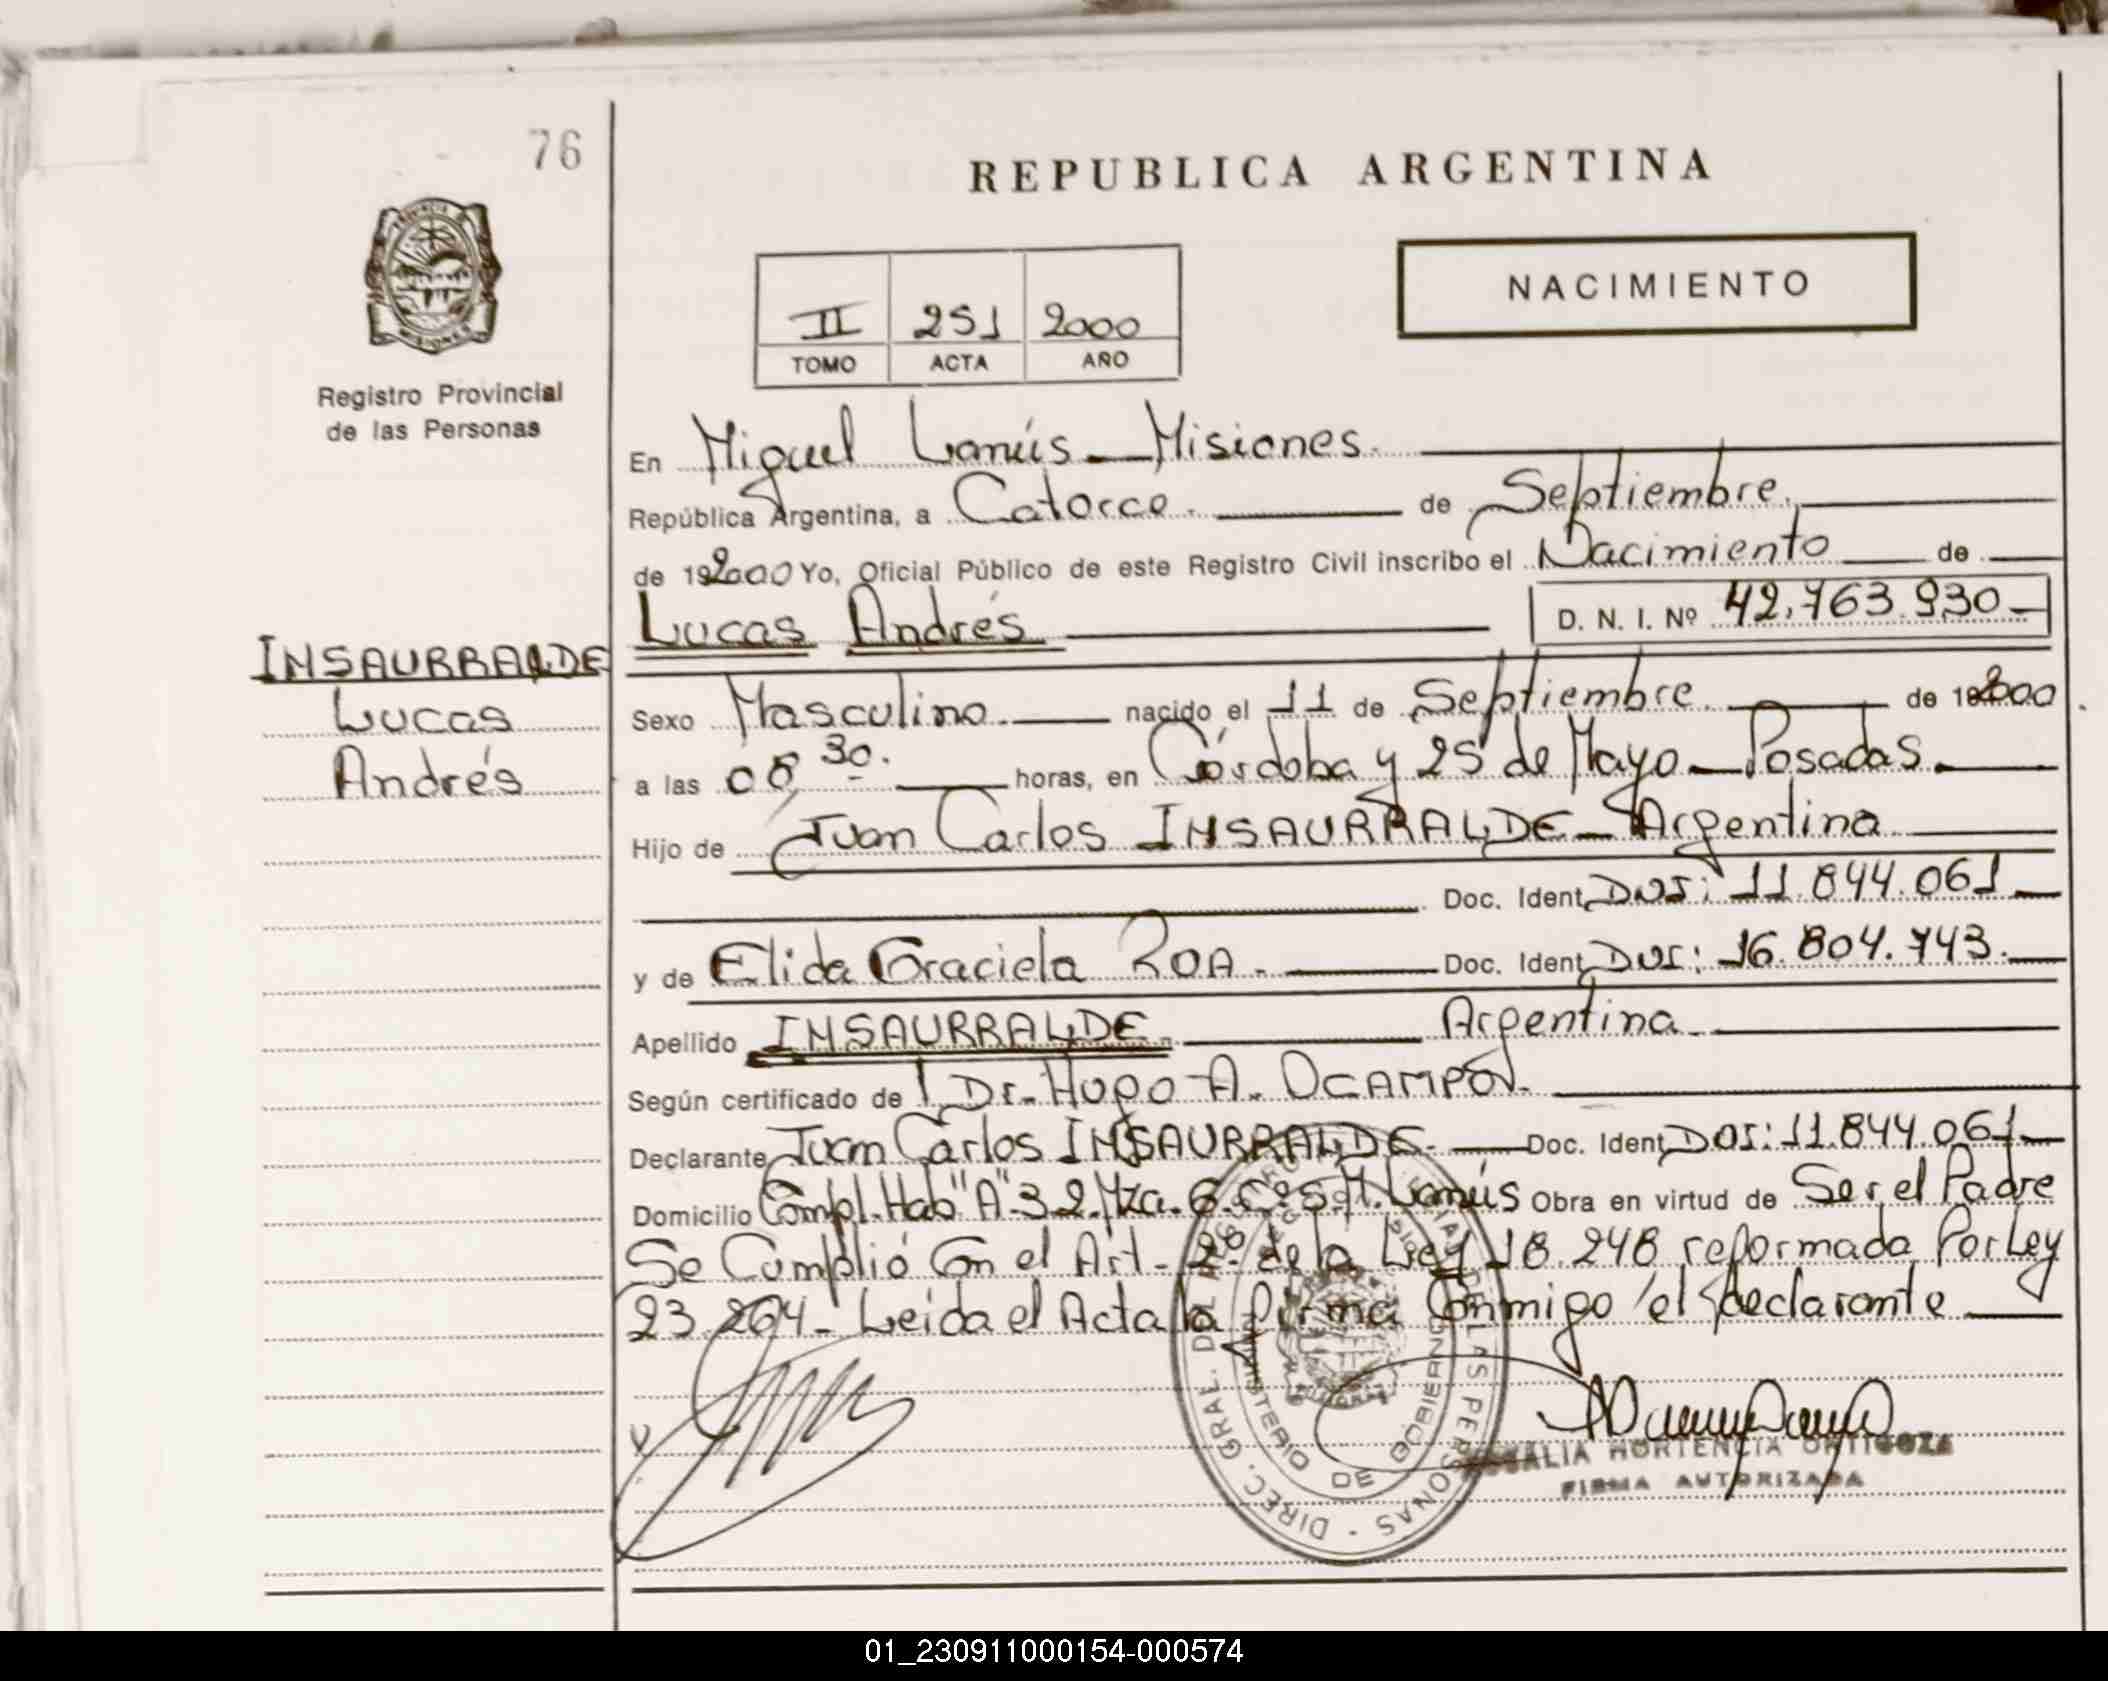 76
REPUBLICA ARGENTINA
NACIMIENTO
II 251 2000
TOMO ACTA AÑO
Registro Provincial
de las Personas
En Miguel Lanús - Misiones.
República Argentina, a Catorce. de Septiembre.
de 192000 Yo, Oficial Público de este Registro Civil inscribo el Nacimiento de
Lucas Andrés D. N. I. Nº 42.763.930
INSAURRALDE
Lucas
Andrés
Sexo Masculino. nacido el 11 de Septiembre. de 192000
a las 08,30. horas, en Córdoba y 25 de Mayo - Posadas.
Hijo de Juan Carlos INSAURRALDE - Argentina
Doc. Ident. DNI: 11.844.061
y de Elida Graciela ROA. Doc. Ident. DNI: 16.804.743.
Apellido INSAURRALDE. Argentina
Según certificado de Dr. Hugo A. OCAMPO.
Declarante Juan Carlos INSAURRALDE. Doc. Ident. DNI: 11.844.061
Domicilio Compl. Hab "A" 32. Mza. 6. Cº 5. M. Lanús Obra en virtud de Ser el Padre
Se Cumplió Con el Art. 2º de la Ley 18.248 reformada Por Ley
23.264 - Leida el Acta la firma Conmigo el declarante
DIREC. GRAL. DEL REGISTRO DE LAS PERSONAS
MINISTERIO DE GOBIERNO
ROSALIA HORTENCIA ORTIGOZA
FIRMA AUTORIZADA
01_230911000154-000574